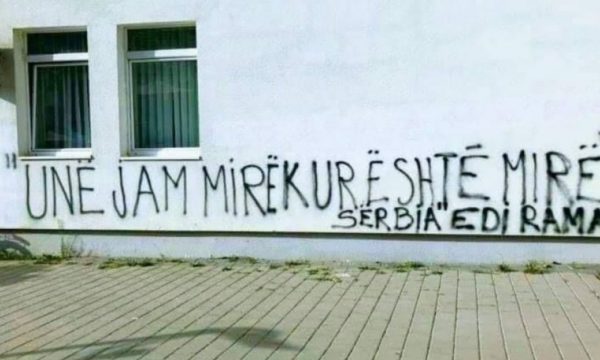 "UNË JAM MIRËKUR ËSHTË MIRË
SËRBIA" EDI RAMA